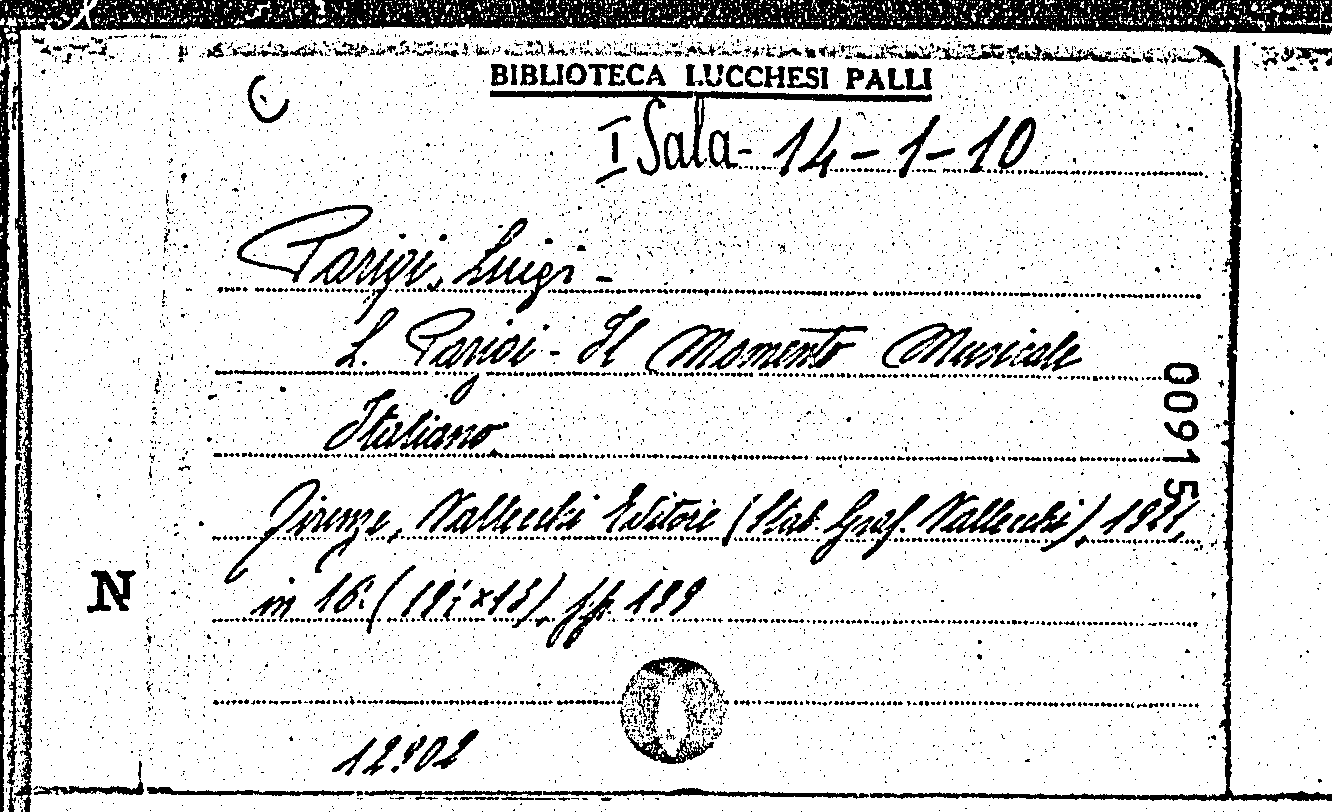 C
BIBLIOTECA LUCCHESI PALLI
I Sala - 14 - 1 - 10
Parigi, Luigi -
L. Parigi - Il Momento Musicale
Italiano.
Firenze, Vallecchi Editore (Stab. Graf. Vallecchi), 1921,
in 16.° ( x13), pp. 199
N
00915
12902